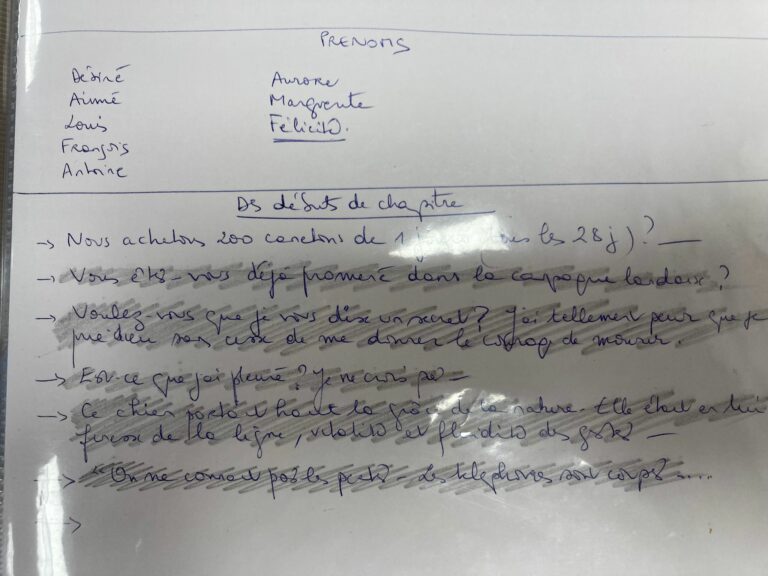 PRENOMS
Désiré Aurore
Aimé Marguerite
Louis Félicité.
François
Antoine
Des débuts de chapitre
→ Nous achetons 200 canetons de 1 les 28 j) ? —
→ Vous êtes-vous déjà promené dans la campagne landaise ?
→ Voulez-vous que je vous dise un secret ? J'ai tellement peur que je
prie Dieu sans cesse de me donner le courage de mourir.
→ Est-ce que j'ai pleuré ? Je ne crois pas —
→ Ce chien portait haut la grâce de la nature. Elle était en lui
de la ligne, vitalité et fluidité des gestes —
→ "On ne connait pas les pertes - Les téléphones sont coupés ....
→